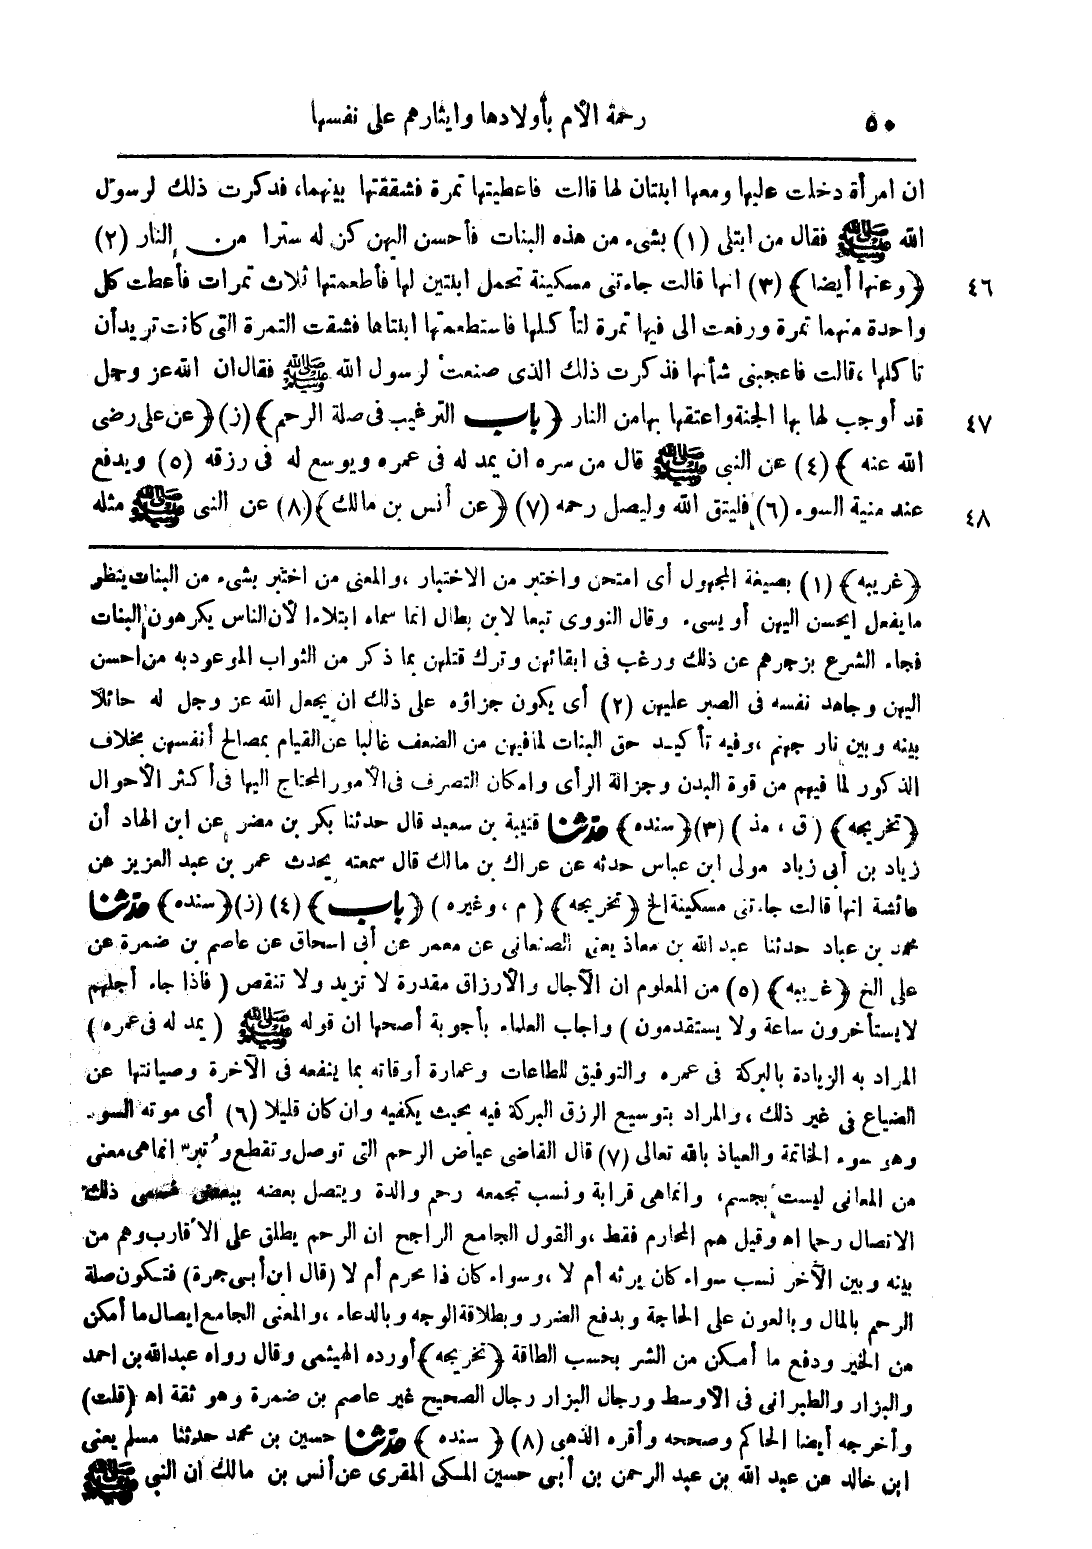 ٥٠
رحمة الأم بأولادها وايثارهم على نفسها
ان امرأة دخلت عليها ومعها ابنتان لها قالت فاعطيتها تمرة فشققتها بينهما، فذكرت ذلك لرسول
الله ﷺ فقال من ابتلى (١) بشىء من هذه البنات فأحسن اليهن كن له سترا من النار (٢)
٤٦ ﴿وعنها أيضا﴾ (٣) انها قالت جاءتنى مسكينة تحمل ابنتين لها فأطعمتها ثلاث تمرات فأعطت كل
واحدة منهما تمرة ورفعت الى فيها تمرة لتأكلها فاستطعمتها ابنتاها فشقت التمرة التى كانت تريد أن
تاكلها، قالت فاعجبنى شأنها فذكرت ذلك الذى صنعت لرسول الله ﷺ فقال ان الله عز وجل
٤٧ قد أوجب لها بها الجنة واعتقها بها من النار ﴿باب الترغيب فى صلة الرحم﴾ (ز) ﴿عن على رضى
الله عنه﴾ (٤) عن النبى ﷺ قال من سره ان يمد له فى عمره ويوسع له فى رزقه (٥) ويدفع
٤٨ عند منية السوء (٦) فليتق الله وليصل رحمه (٧) ﴿عن أنس بن مالك﴾ (٨) عن النبى ﷺ مثله
﴿غريبه﴾ (١) بصيغة المجهول أى امتحن واختبر من الاختبار، والمعنى من اختبر بشىء من البنات ينظر
ما يفعل ايحسن اليهن أو يسىء وقال النووى تبعا لابن بطال انما سماه ابتلاءا لأن الناس يكرهون البنات
فجاء الشرع بزجرهم عن ذلك ورغب فى ابقائهن وترك قتلهن بما ذكر من الثواب الموعود به من احسن
اليهن وجاهد نفسه فى الصبر عليهن (٢) أى يكون جزاؤه على ذلك ان يجعل الله عز وجل له حائلا
بينه وبين نار جهنم، وفيه تأكيد حق البنات لما فيهن من الضعف غالبا عن القيام بمصالح أنفسهن بخلاف
الذكور لما فيهم من قوة البدن وجزالة الرأى وامكان التصرف فى الأمور المحتاج اليها فى أكثر الأحوال
﴿تخريجه﴾ (ق، مذ) (٣) ﴿سنده﴾ حدثنا قتيبة بن سعيد قال حدثنا بكر بن مضر عن ابن الهاد أن
زياد بن أبى زياد مولى ابن عباس حدثه عن عراك بن مالك قال سمعته يحدث عمر بن عبد العزيز عن
عائشة انها قالت جاءتنى مسكينة الخ ﴿تخريجه﴾ (م، وغيره) ﴿باب﴾ (٤) (ز) ﴿سنده﴾ حدثنا
محمد بن عباد حدثنا عبد الله بن معاذ يعنى الصنعانى عن معمر عن أبى اسحاق عن عاصم بن ضمرة عن
على الخ ﴿غريبه﴾ (٥) من المعلوم ان الآجال والأرزاق مقدرة لا تزيد ولا تنقص (فاذا جاء أجلهم
لا يستأخرون ساعة ولا يستقدمون) واجاب العلماء بأجوبة أصحها ان قوله ﷺ (يمد له فى عمره)
المراد به الزيادة بالبركة فى عمره والتوفيق للطاعات وعمارة أوقاته بما ينفعه فى الآخرة وصيانتها عن
الضياع فى غير ذلك، والمراد بتوسيع الرزق البركة فيه بحيث يكفيه وان كان قليلا (٦) أى موته السوء
وهو سوء الخاتمة والعياذ بالله تعالى (٧) قال القاضى عياض الرحم التى توصل وتقطع وتُبرّ انما هى معنى
من المعانى ليست بجسم، وانما هى قرابة ونسب تجمعه رحم والدة ويتصل بعضه ببعض فسمى ذلك
الاتصال رحما اه وقيل هم المحارم فقط، والقول الجامع الراجح ان الرحم يطلق على الأقارب وهم من
بينه وبين الآخر نسب سواء كان يرثه أم لا، وسواء كان ذا محرم أم لا (قال ابن أبى جمرة) فتكون صلة
الرحم بالمال وبالعون على الحاجة وبدفع الضرر وبطلاقة الوجه وبالدعاء، والمعنى الجامع ايصال ما أمكن
من الخير ودفع ما أمكن من الشر بحسب الطاقة ﴿تخريجه﴾ أورده الهيثمى وقال رواه عبد الله بن احمد
والبزار والطبرانى فى الأوسط ورجال البزار رجال الصحيح غير عاصم بن ضمرة وهو ثقة اه (قلت)
وأخرجه أيضا الحاكم وصححه وأقره الذهبى (٨) ﴿سنده﴾ حدثنا حسين بن محمد حدثنا مسلم يعنى
ابن خالد عن عبد الله بن عبد الرحمن بن أبى حسين المكى المقرى عن أنس بن مالك ان النبى ﷺ